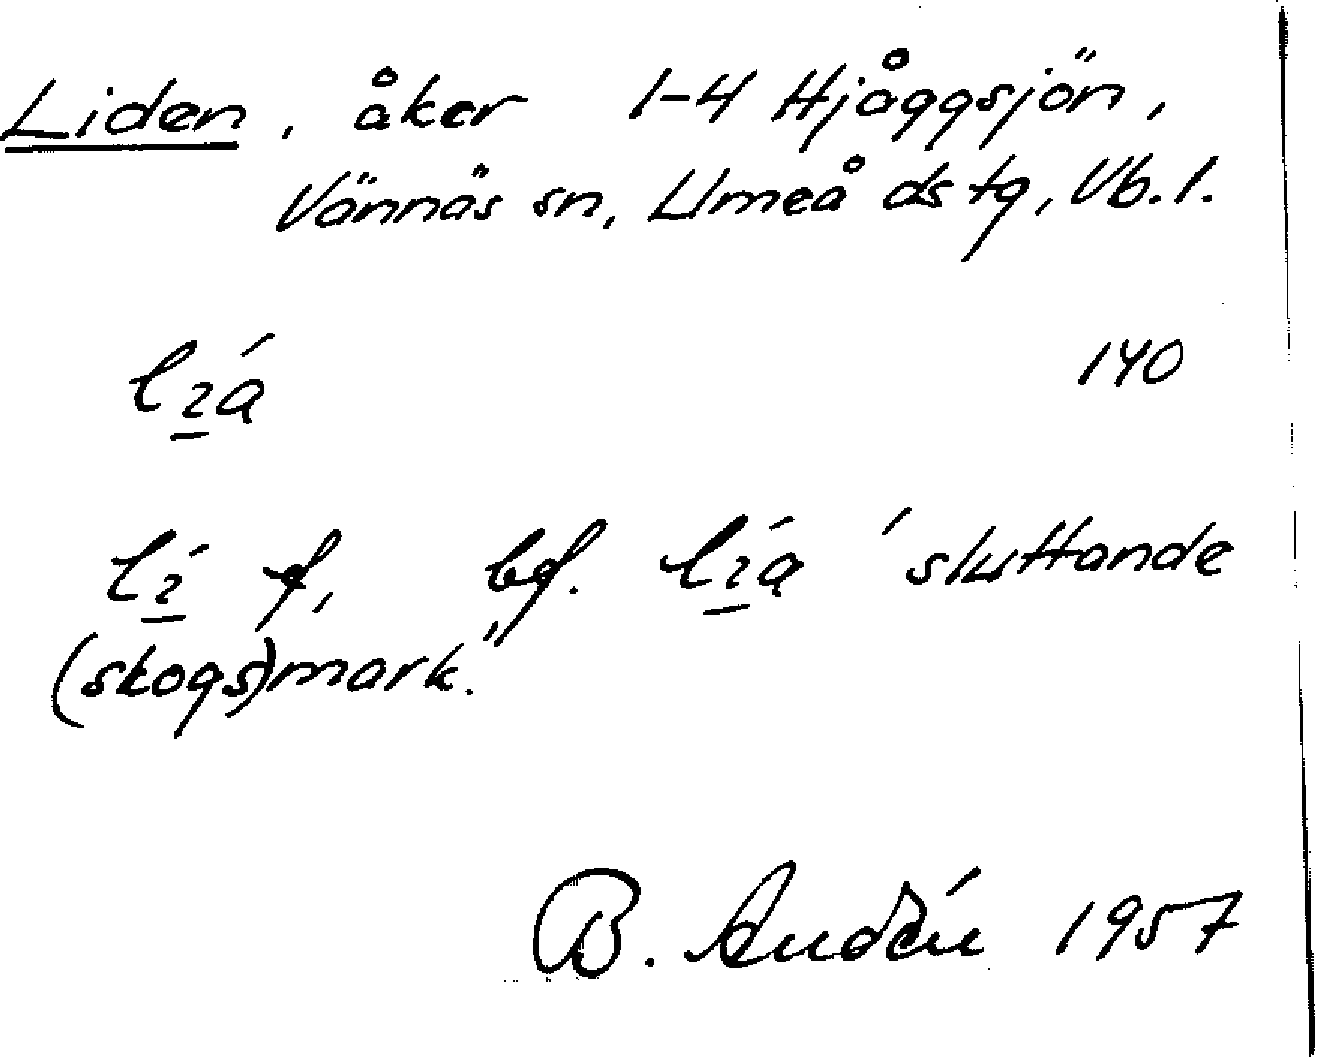 Liden, åker 1-4 Hjåggsjön,
Vännäs sn, Umeå dstg, Vb. l.
lı̲́a 140
lı̲́ f, bf. lı̲́a ' sluttande
(skogs)mark."
B. Audén 1957